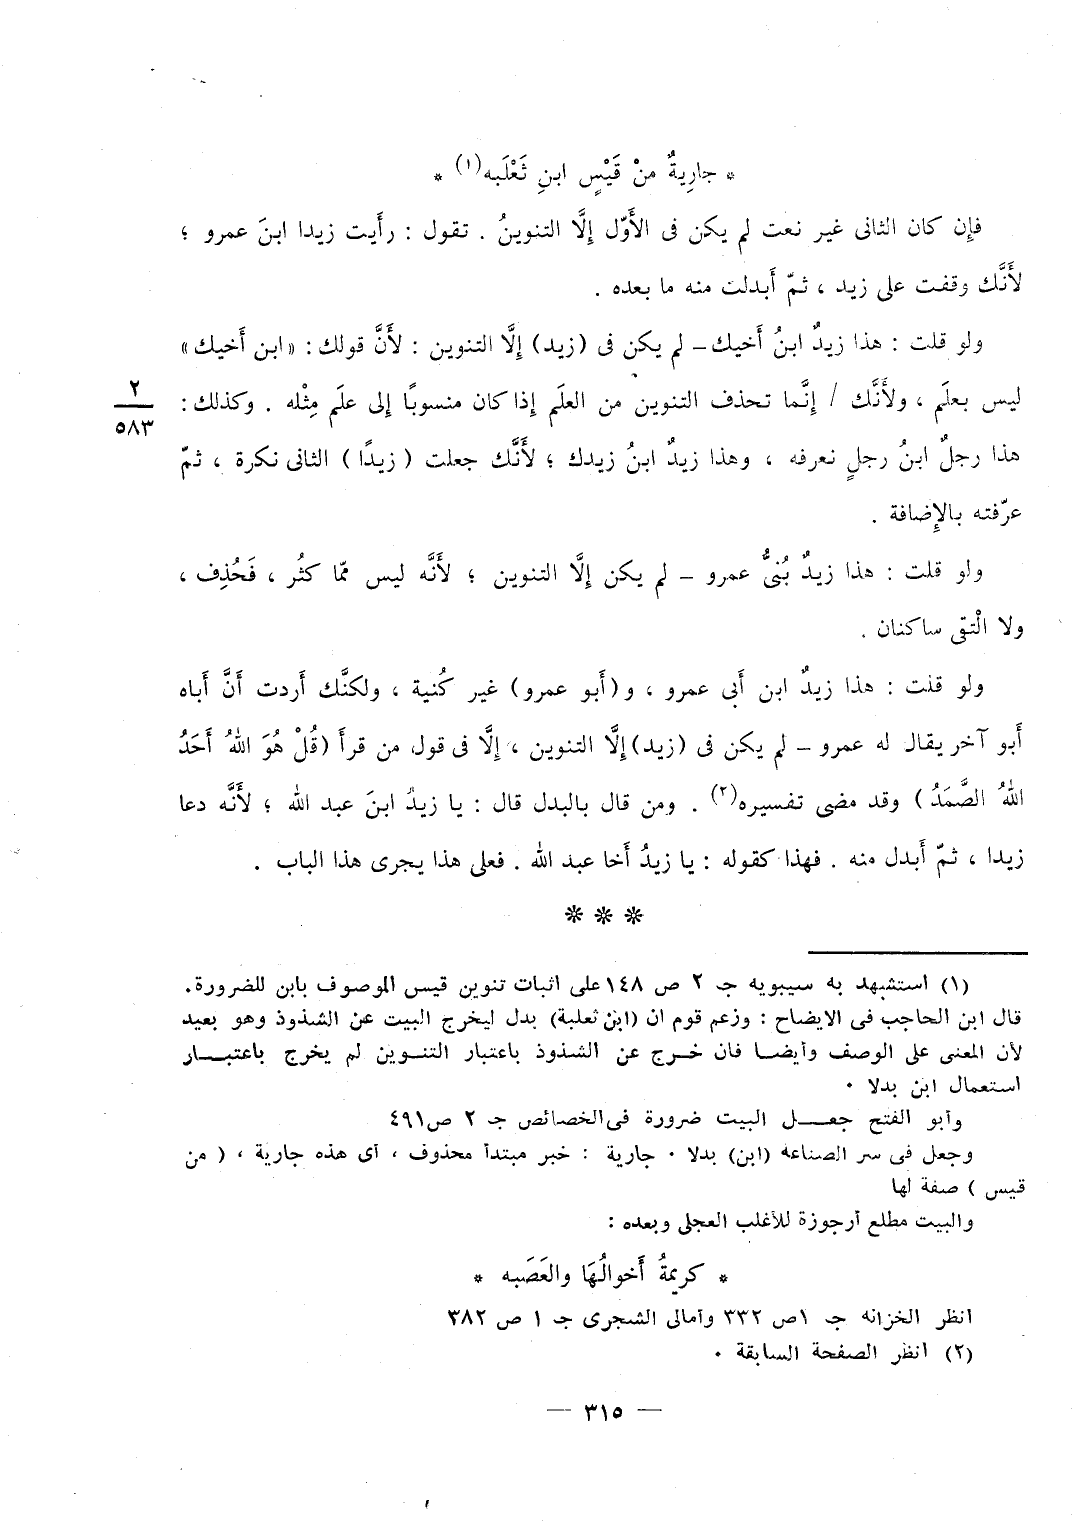 * جارِيةٌ منْ قَيْسٍ ابنِ ثَعْلَبه(١) *
فإن كان الثانى غير نعت لم يكن فى الأَوّل إلَّا التنوينُ . تقول : رأَيت زيدا ابنَ عمرو ؛
لأَنَّك وقفت على زيد ، ثمّ أَبدلت منه ما بعده .
ولو قلت : هذا زيدٌ ابنُ أَخيك – لم يكن فى (زيد) إلَّا التنوين : لأَنَّ قولك : «ابن أَخيك»
ليس بعلَم ، ولأَنَّك / إنَّما تحذف التنوين من العلَم إذا كان منسوبًا إلى علَم مِثْله . وكذلك :
٢
٥٨٣
هذا رجلٌ ابنُ رجلٍ نعرفه ، وهذا زيدٌ ابنُ زيدك ؛ لأَنَّك جعلت ( زيدًا ) الثانى نكرة ، ثمّ
عرّفته بالإِضافة .
ولو قلت : هذا زيدٌ بُنىُّ عمرو – لم يكن إلَّا التنوين ؛ لأَنَّه ليس ممّا كثُر ، فَحُذِف ،
ولا الْتقى ساكنان .
ولو قلت : هذا زيدٌ ابن أَبى عمرو ، و(أَبو عمرو) غير كُنية ، ولكنَّك أَردت أَنَّ أَباه
أَبو آخر يقال له عمرو – لم يكن فى (زيد) إلَّا التنوين ، إلَّا فى قول من قرأَ (قُلْ هُوَ اللهُ أَحَدُ
اللهُ الصَّمَدُ ) وقد مضى تفسيره(٢) . ومن قال بالبدل قال : يا زيدُ ابنَ عبد الله ؛ لأَنَّه دعا
زيدا ، ثمّ أَبدل منه . فهذا كقوله : يا زيدُ أَخا عبد الله . فعلى هذا يجرى هذا الباب .
* * *
(١) استشهد به سيبويه جـ ٢ ص ١٤٨ على اثبات تنوين قيس الموصوف بابن للضرورة.
قال ابن الحاجب فى الايضاح : وزعم قوم ان (ابن ثعلبة) بدل ليخرج البيت عن الشذوذ وهو بعيد
لأن المعنى على الوصف وأيضا فان خرج عن الشذوذ باعتبار التنوين لم يخرج باعتبار
استعمال ابن بدلا ٠
وأبو الفتح جعل البيت ضرورة فى الخصائص جـ ٢ ص ٤٩١
وجعل فى سر الصناعة (ابن) بدلا ٠ جارية : خبر مبتدأ محذوف ، أى هذه جارية ، ( من
قيس ) صفة لها
والبيت مطلع أرجوزة للأغلب العجلى وبعده :
* كريمةٌ أَخوالُهَا والعَصَبه *
انظر الخزانه جـ ١ ص ٣٣٢ وأمالى الشجرى جـ ١ ص ٣٨٢
(٢) انظر الصفحة السابقة ٠
— ٣١٥ —